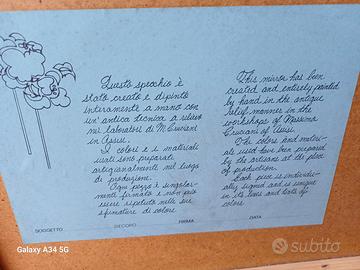 Questo specchio è
stato creato e dipinto
interamente a mano con
un'antica tecnica a rilievo
nei laboratori di M. Cruciani
in Assisi.
I colori e i materiali
usati sono preparati
artigianalmente nel luogo
di produzione.
Ogni pezzo è singolar-
mente firmato e non può
essere ripetuto nelle sue
sfumature di colore.
This mirror has been
created and entirely painted
by hand in the antique
relief manner in the
workshops of Massimo
Cruciani of Assisi.
The colors and materi-
als used have been prepared
by the artisans at the place
of production.
Each piece is individu-
ally signed and is unique
in its lines and tints of
colors.
SOGGETTO DECORO FIRMA DATA
Galaxy A34 5G
subito